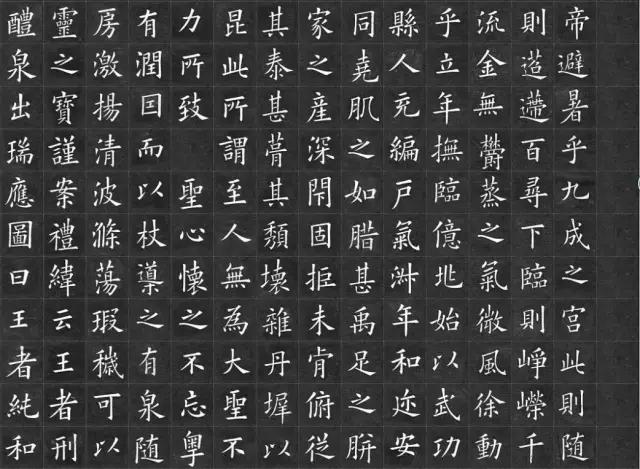 帝避暑乎九成之宮此則随
則迢遰百尋下臨則崢嶸千
流金無欝蒸之氣微風徐動
乎立年撫臨億兆始以武功
縣人充編戶氣淑年和迩安
同堯肌之如腊甚禹足之胼
家之産深閇固拒未肯俯従
其泰甚葺其頹壞雜丹墀以
昆此所謂至人無為大聖不
力所致 聖心懷之不忘粤
有潤囯而以杖導之有泉随
房激揚清波滌蕩瑕穢可以
靈之寶謹案禮緯云王者刑
醴泉出瑞應圖曰王者純和